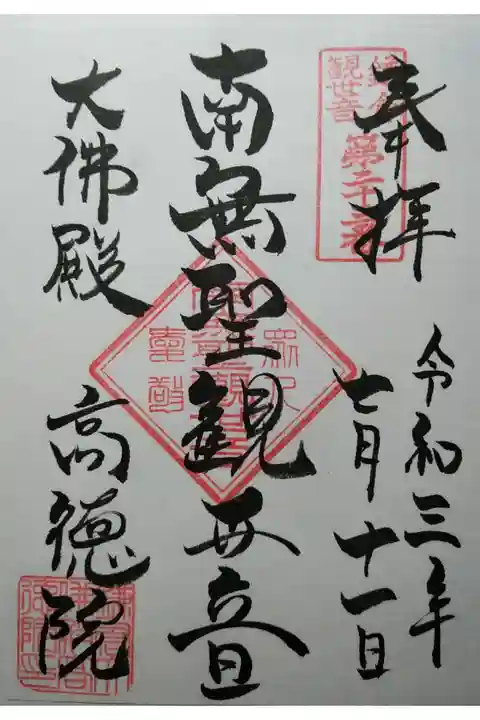 奉拝
令和三年
七月十一日
南無聖観世音
大佛殿
高徳院
鎌倉
観世音
第二十三番